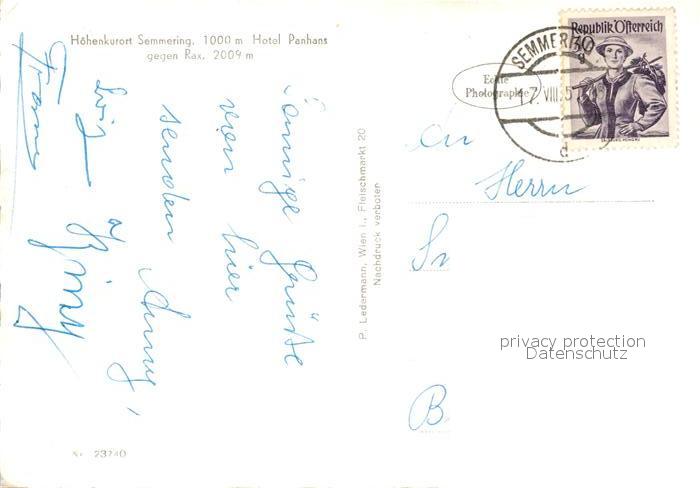 Höhenkurort Semmering, 1000 m Hotel Panhans
gegen Rax, 2009 m
Echte
Photographie
Republik Österreich
30
SEMMERING
17. VIII. 5
d
An
Herrn
B
Innige Grüße
von hier
senden Anny,
Franz
P. Ledermann, Wien I., Fleischmarkt 20
Nachdruck verboten
privacy protection
Datenschutz
Nr. 23740